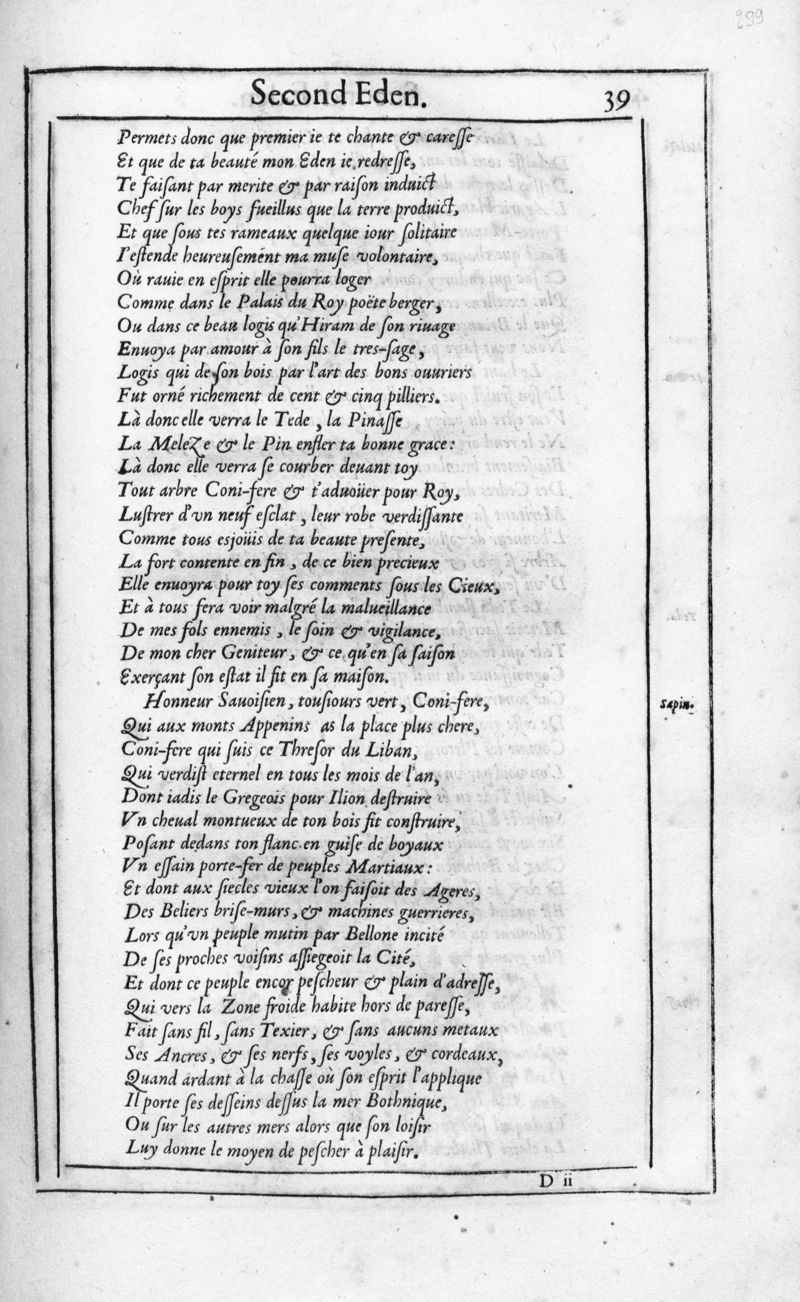 299
Second Eden.
39
Permets donc que premier ie te chante & careſſe
Et que de ta beauté mon Eden ie redreſſe,
Te faiſant par merite & par raiſon induict
Chef ſur les boys fueillus que la terre produict,
Et que ſous tes rameaux quelque iour ſolitaire
I'eſtende heureuſemént ma muſe volontaire,
Où rauie en eſprit elle pourra loger
Comme dans le Palais du Roy poëte berger,
Ou dans ce beau logis qu'Hiram de ſon riuage
Enuoya par amour à ſon fils le tres-ſage,
Logis qui de ſon bois par l'art des bons ouuriers
Fut orné richement de cent & cinq pilliers.
Là donc elle verra le Tede, la Pinaſſe
La MeleZe & le Pin enfler ta bonne grace:
Là donc elle verra ſe courber deuant toy
Tout arbre Coni-fere & t'aduoüer pour Roy,
Luſtrer d'vn neuf eſclat, leur robe verdiſſante
Comme tous esjoüis de ta beaute preſente,
La fort contente en fin, de ce bien precieux
Elle enuoyra pour toy ſes comments ſous les Cieux,
Et à tous fera voir malgré la malueillance
De mes fols ennemis, le ſoin & vigilance,
De mon cher Geniteur, & ce qu'en ſa ſaiſon
Exerçant ſon eſtat il fit en ſa maiſon.
Honneur Sauoiſien, touſiours vert, Coni-fere,
sapin.
Qui aux monts Appenins as la place plus chere,
Coni-fere qui ſuis ce Threſor du Liban,
Qui verdiſt eternel en tous les mois de l'an,
Dont iadis le Gregeois pour Ilion deſtruire
Vn cheual montueux de ton bois fit conſtruire,
Poſant dedans ton flanc en guiſe de boyaux
Vn eſſain porte-fer de peuples Martiaux:
Et dont aux ſiecles vieux l'on faiſoit des Ageres,
Des Beliers briſe-murs, & machines guerrieres,
Lors qu'vn peuple mutin par Bellone incité
De ſes proches voiſins aſſiegeoit la Cité,
Et dont ce peuple encor peſcheur & plain d'adreſſe,
Qui vers la Zone froide habite hors de pareſſe,
Fait ſans fil, ſans Texier, & ſans aucuns metaux
Ses Ancres, & ſes nerfs, ſes voyles, & cordeaux,
Quand ardant à la chaſſe où ſon eſprit l'applique
Il porte ſes deſſeins deſſus la mer Bothnique,
Ou ſur les autres mers alors que ſon loiſir
Luy donne le moyen de peſcher à plaiſir.
D ii